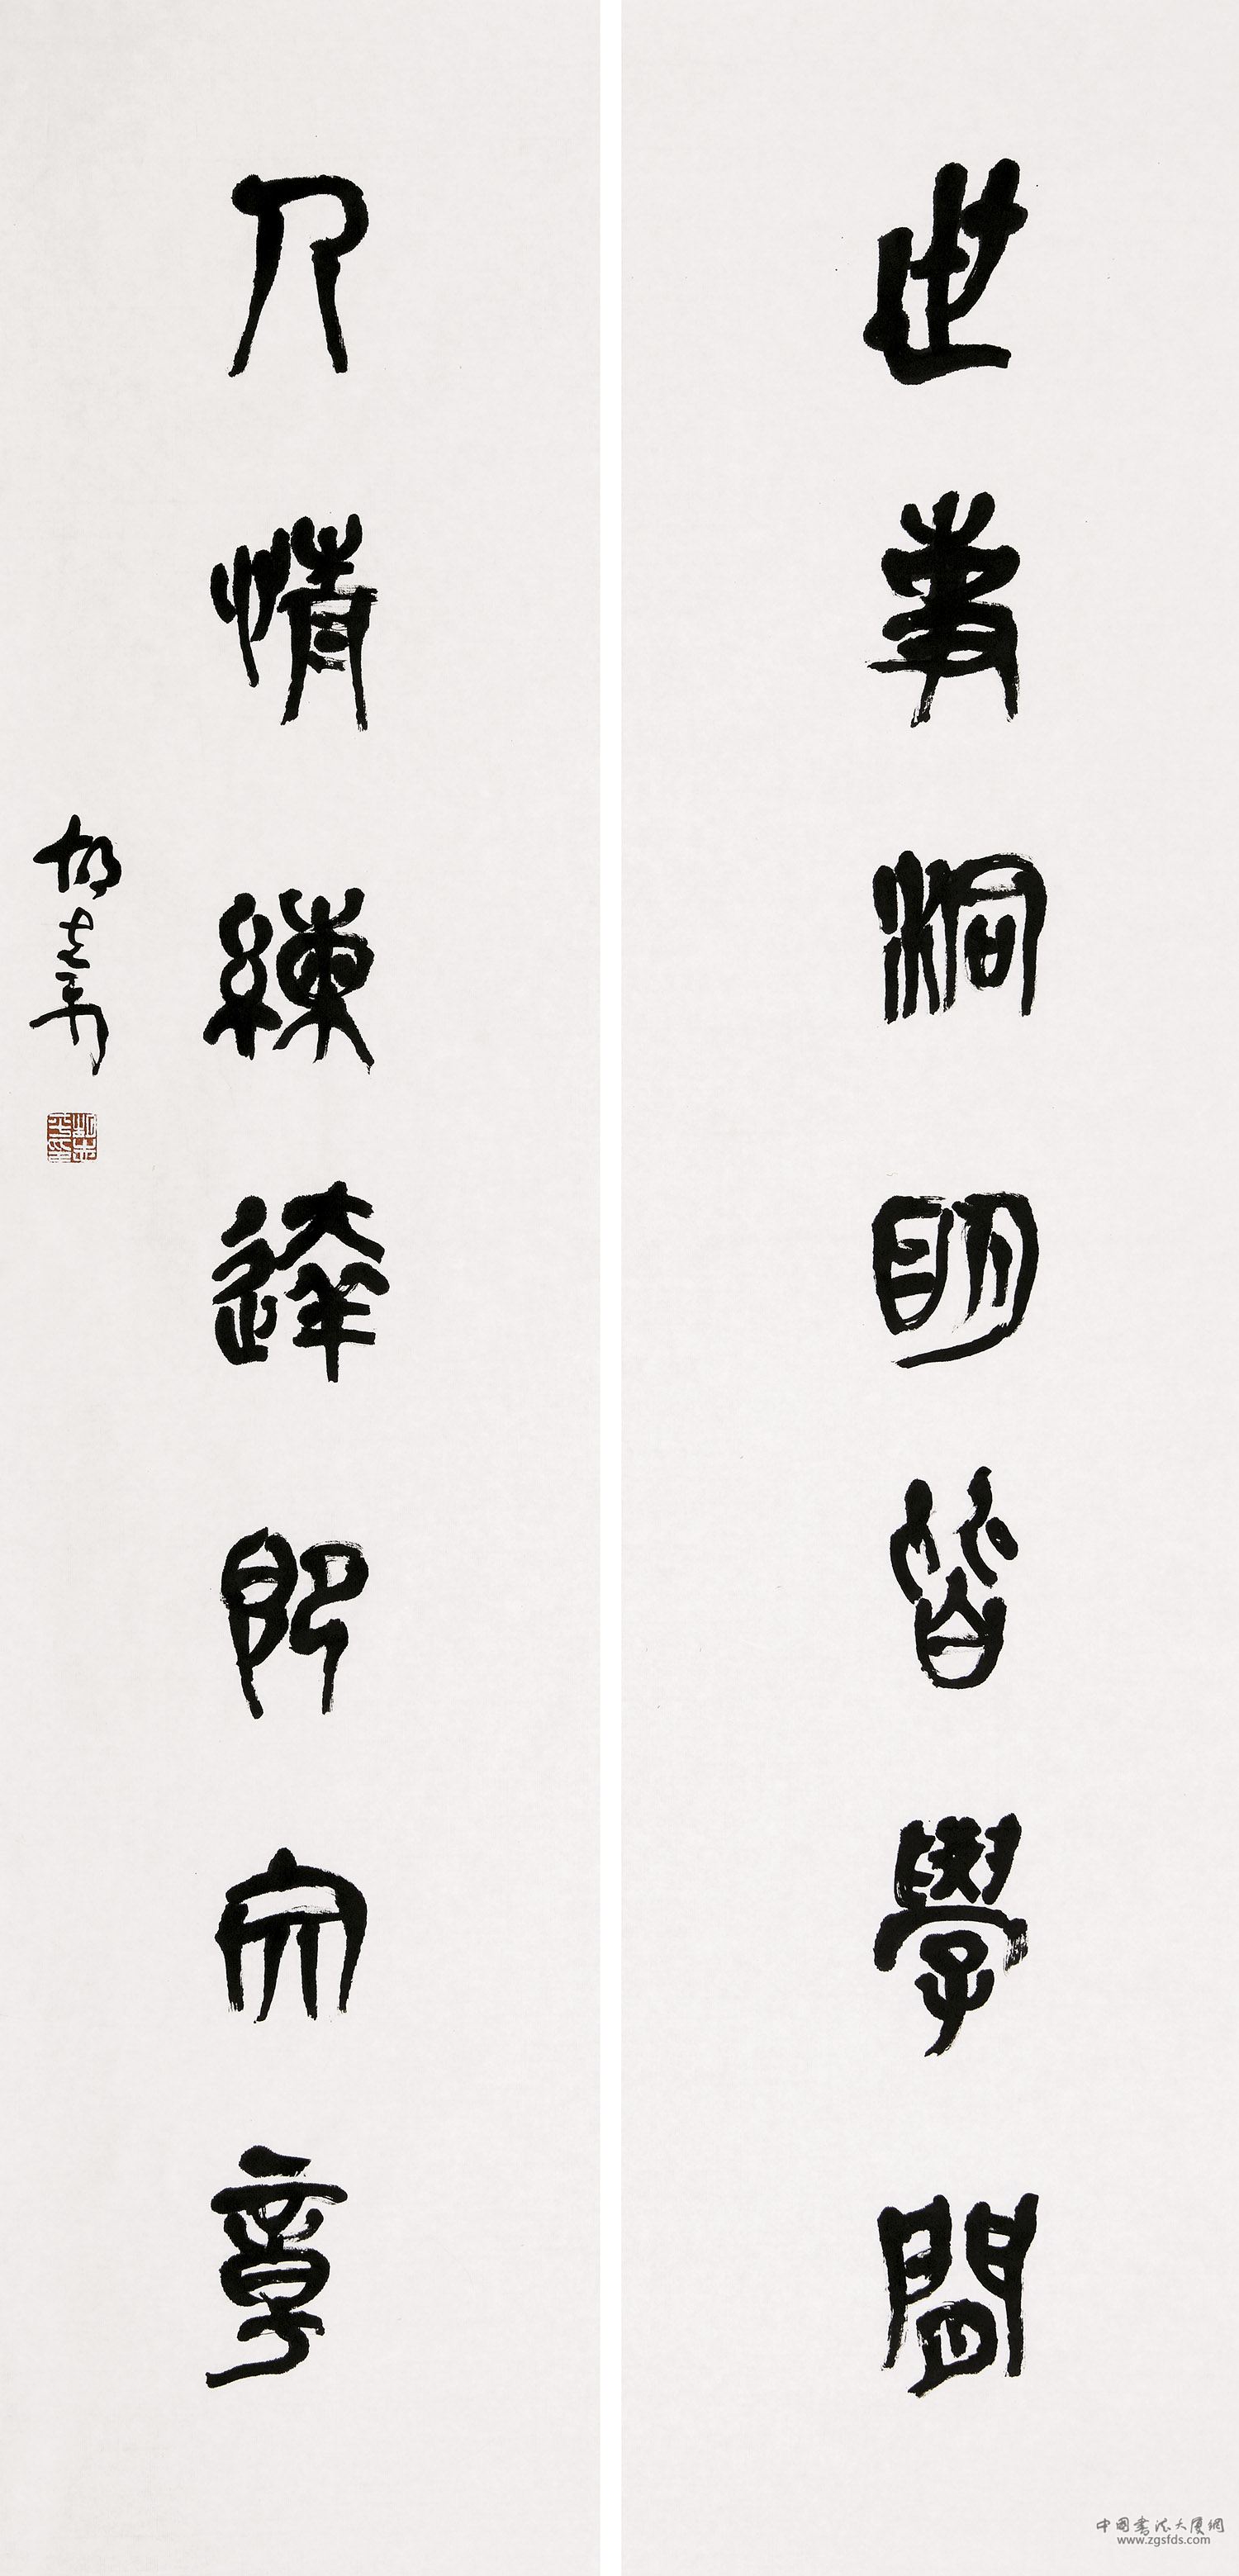 世事洞明皆學問
人情練達即文章
胡志平
中国书法大厦網
www.zgsfds.com